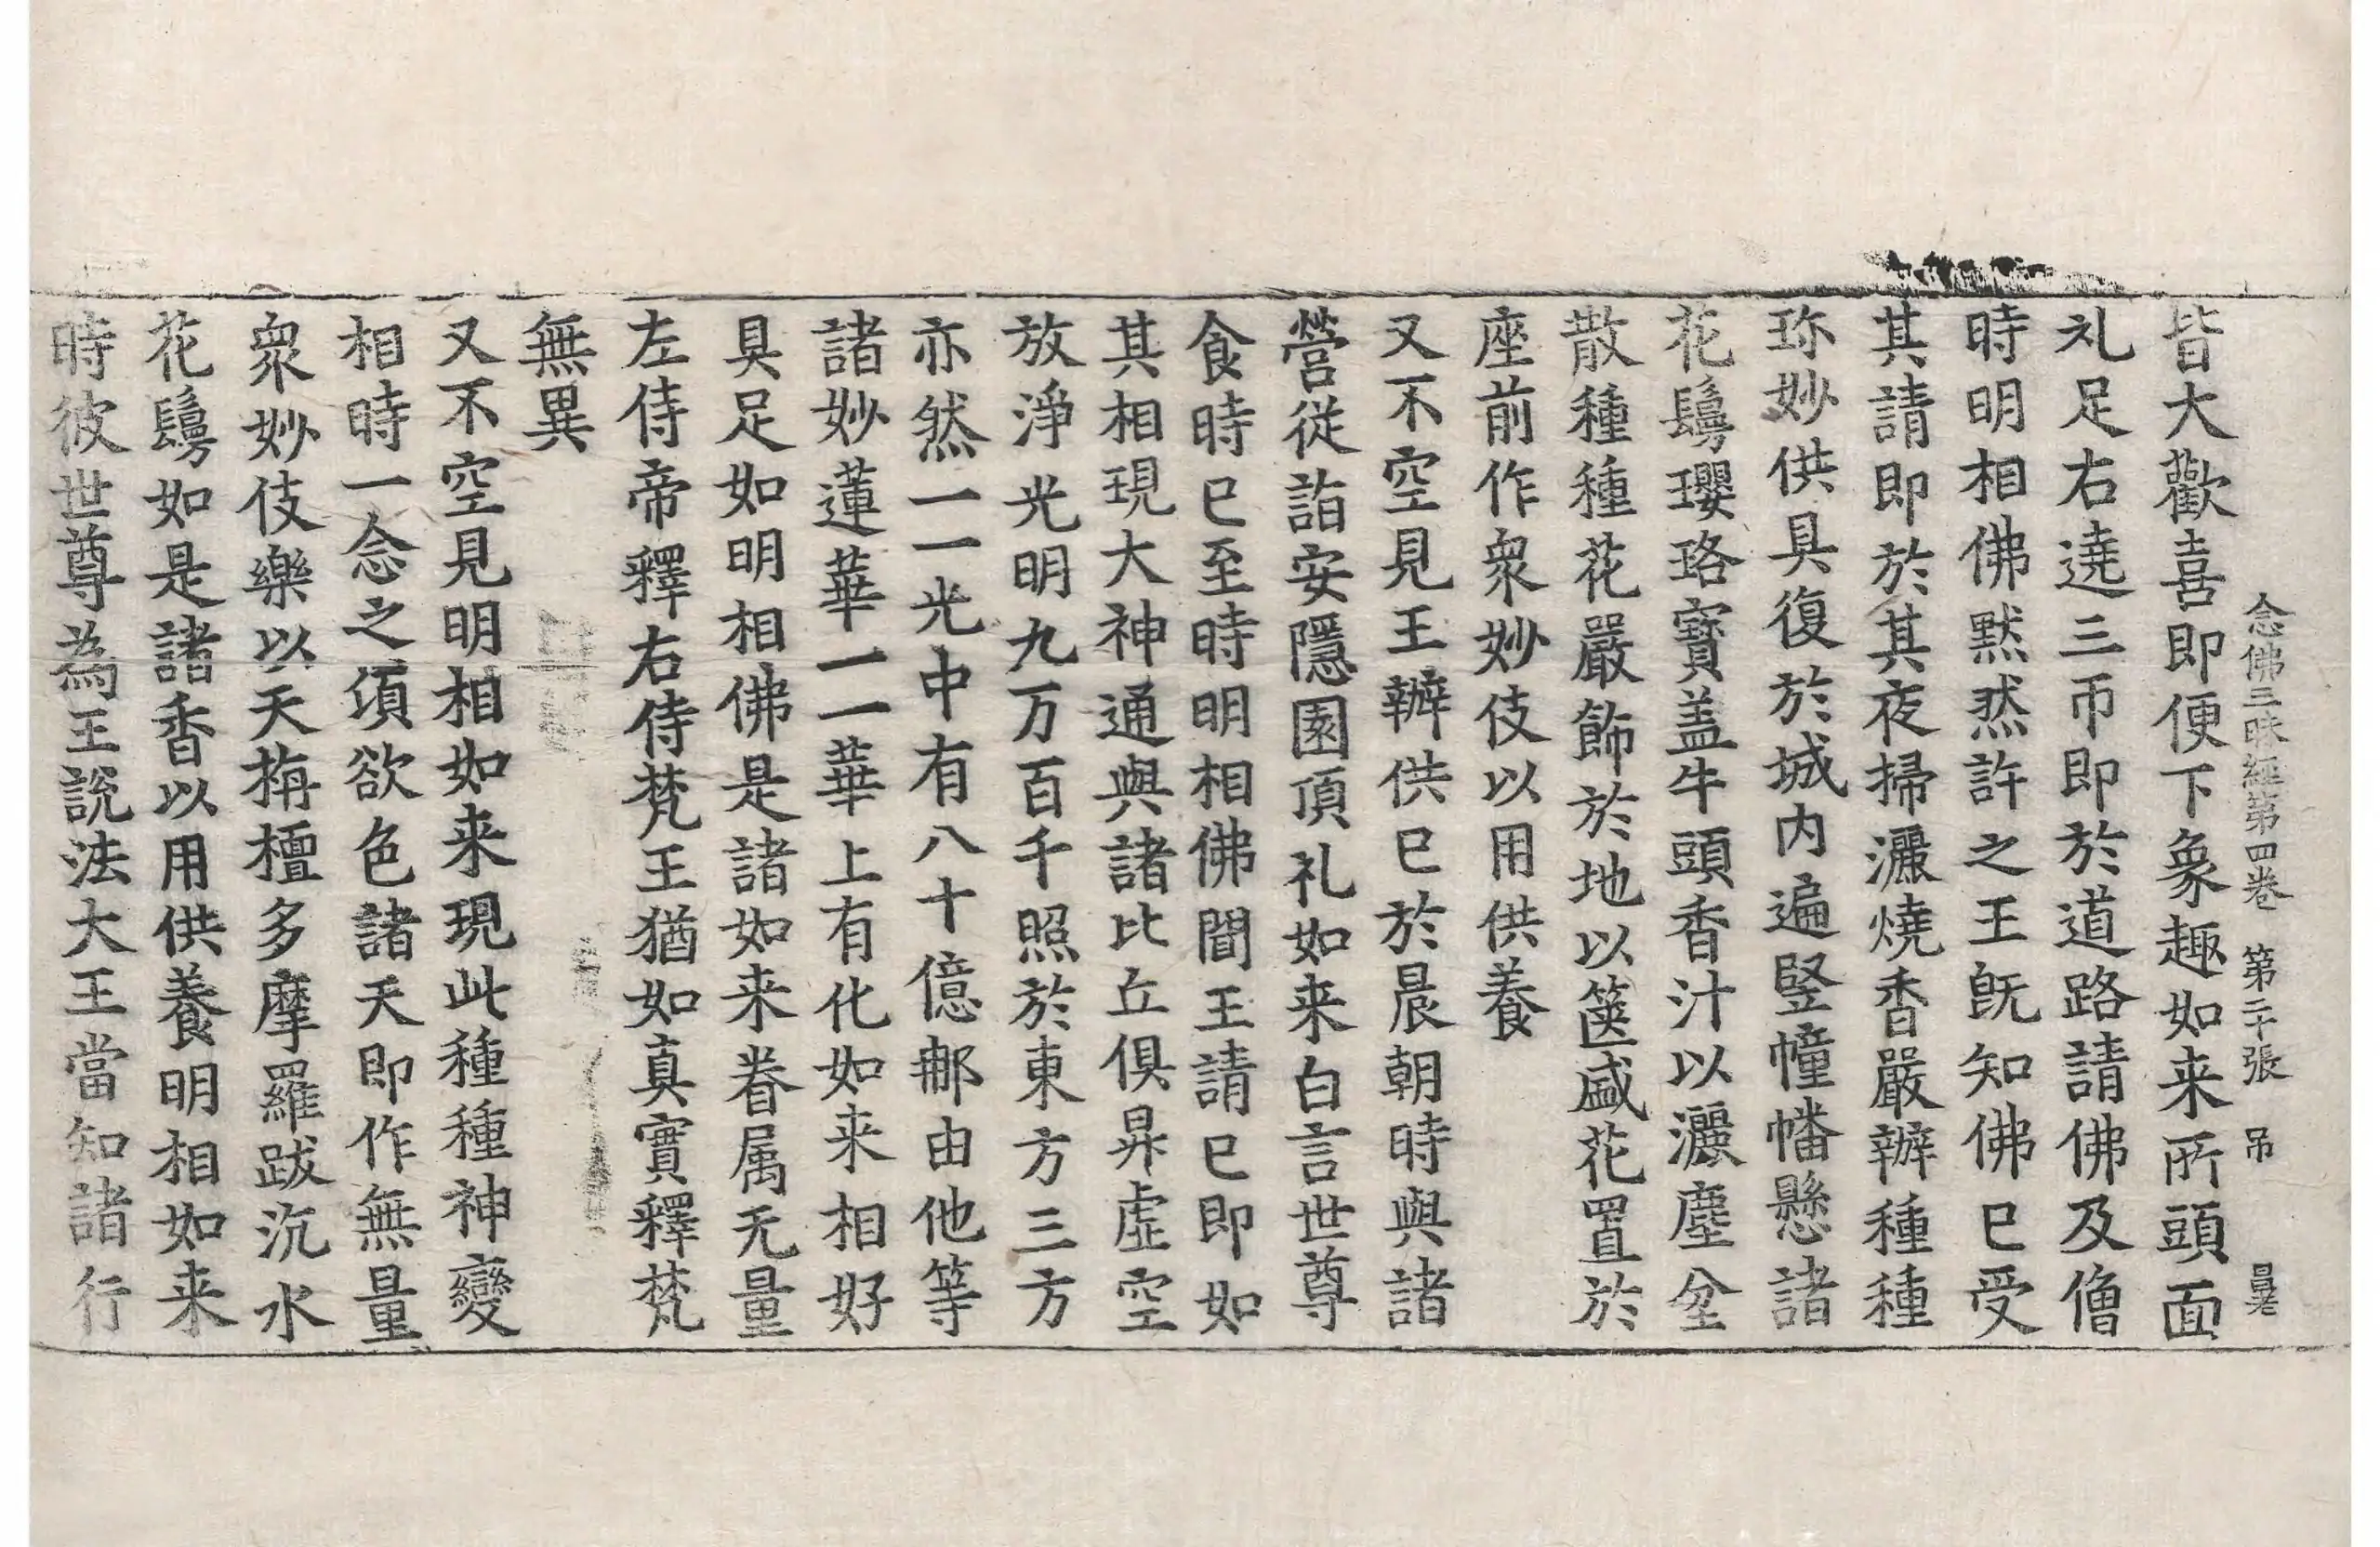 念佛三昧經第四卷 第二十張 吊
皆大歡喜即便下象趣如来所頭面
礼足右遶三帀即於道路請佛及僧
時明相佛黙然許之王旣知佛已受
其請即於其夜掃灑燒香嚴辦種種
珎妙供具復於城内遍竪幢幡懸諸
花鬘瓔珞寶盖牛頭香汁以灑塵坌
散種種花嚴飾於地以篋盛花置於
座前作衆妙伎以用供養
又不空見王辦供已於晨朝時與諸
營從詣安隱園頂礼如来白言世尊
食時已至時明相佛聞王請已即如
其相現大神通與諸比丘俱昇虛空
放淨光明九万百千照於東方三方
亦然一一光中有八十億郍由他等
諸妙蓮華一一華上有化如来相好
具足如明相佛是諸如来眷属无量
左侍帝釋右侍梵王猶如真實釋梵
無異
又不空見明相如来現此種種神變
相時一念之湏欲色諸天即作無量
衆妙伎樂以天栴檀多摩羅跋沉水
花鬘如是諸香以用供養明相如来
時彼世尊為王說法大王當知諸行